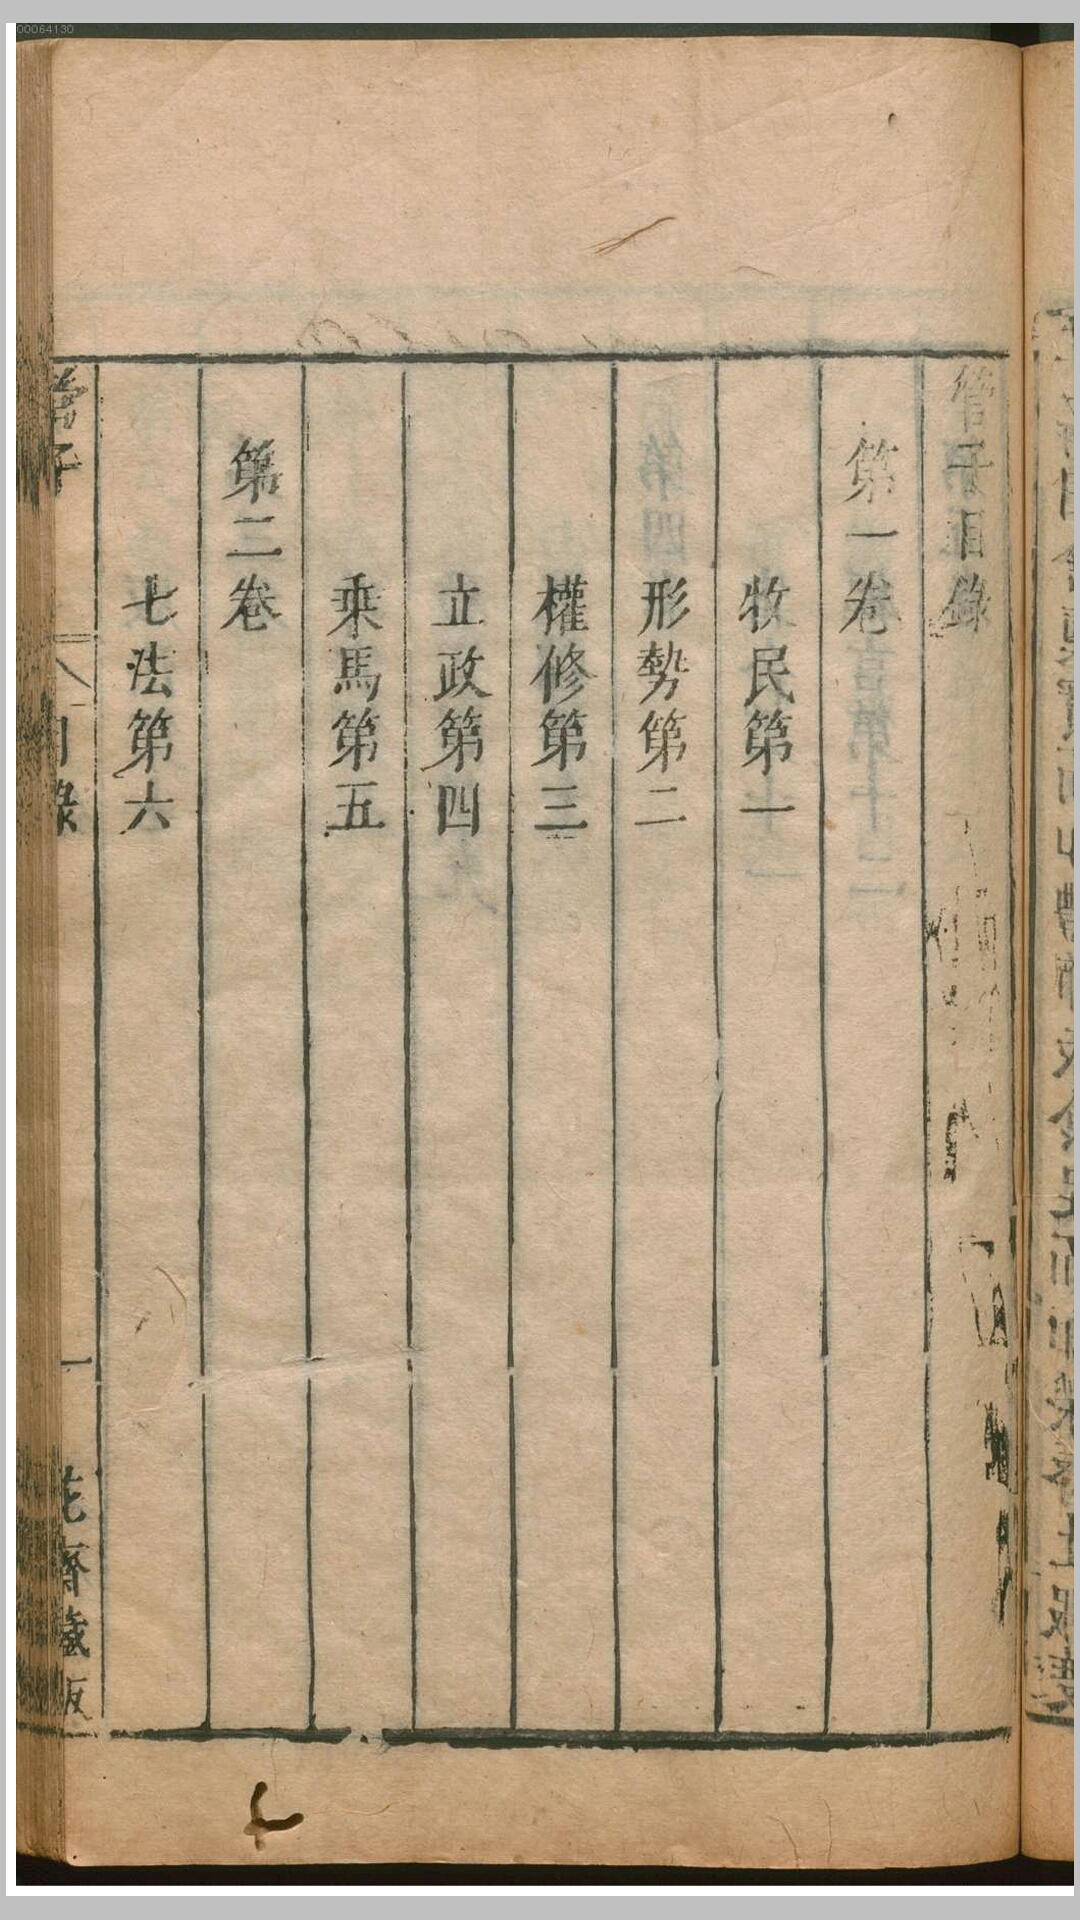 管子目錄
第一卷
牧民第一
形勢第二
權修第三
立政第四
乘馬第五
第二卷
七法第六
管子
目錄
一
花齋藏版
00064130